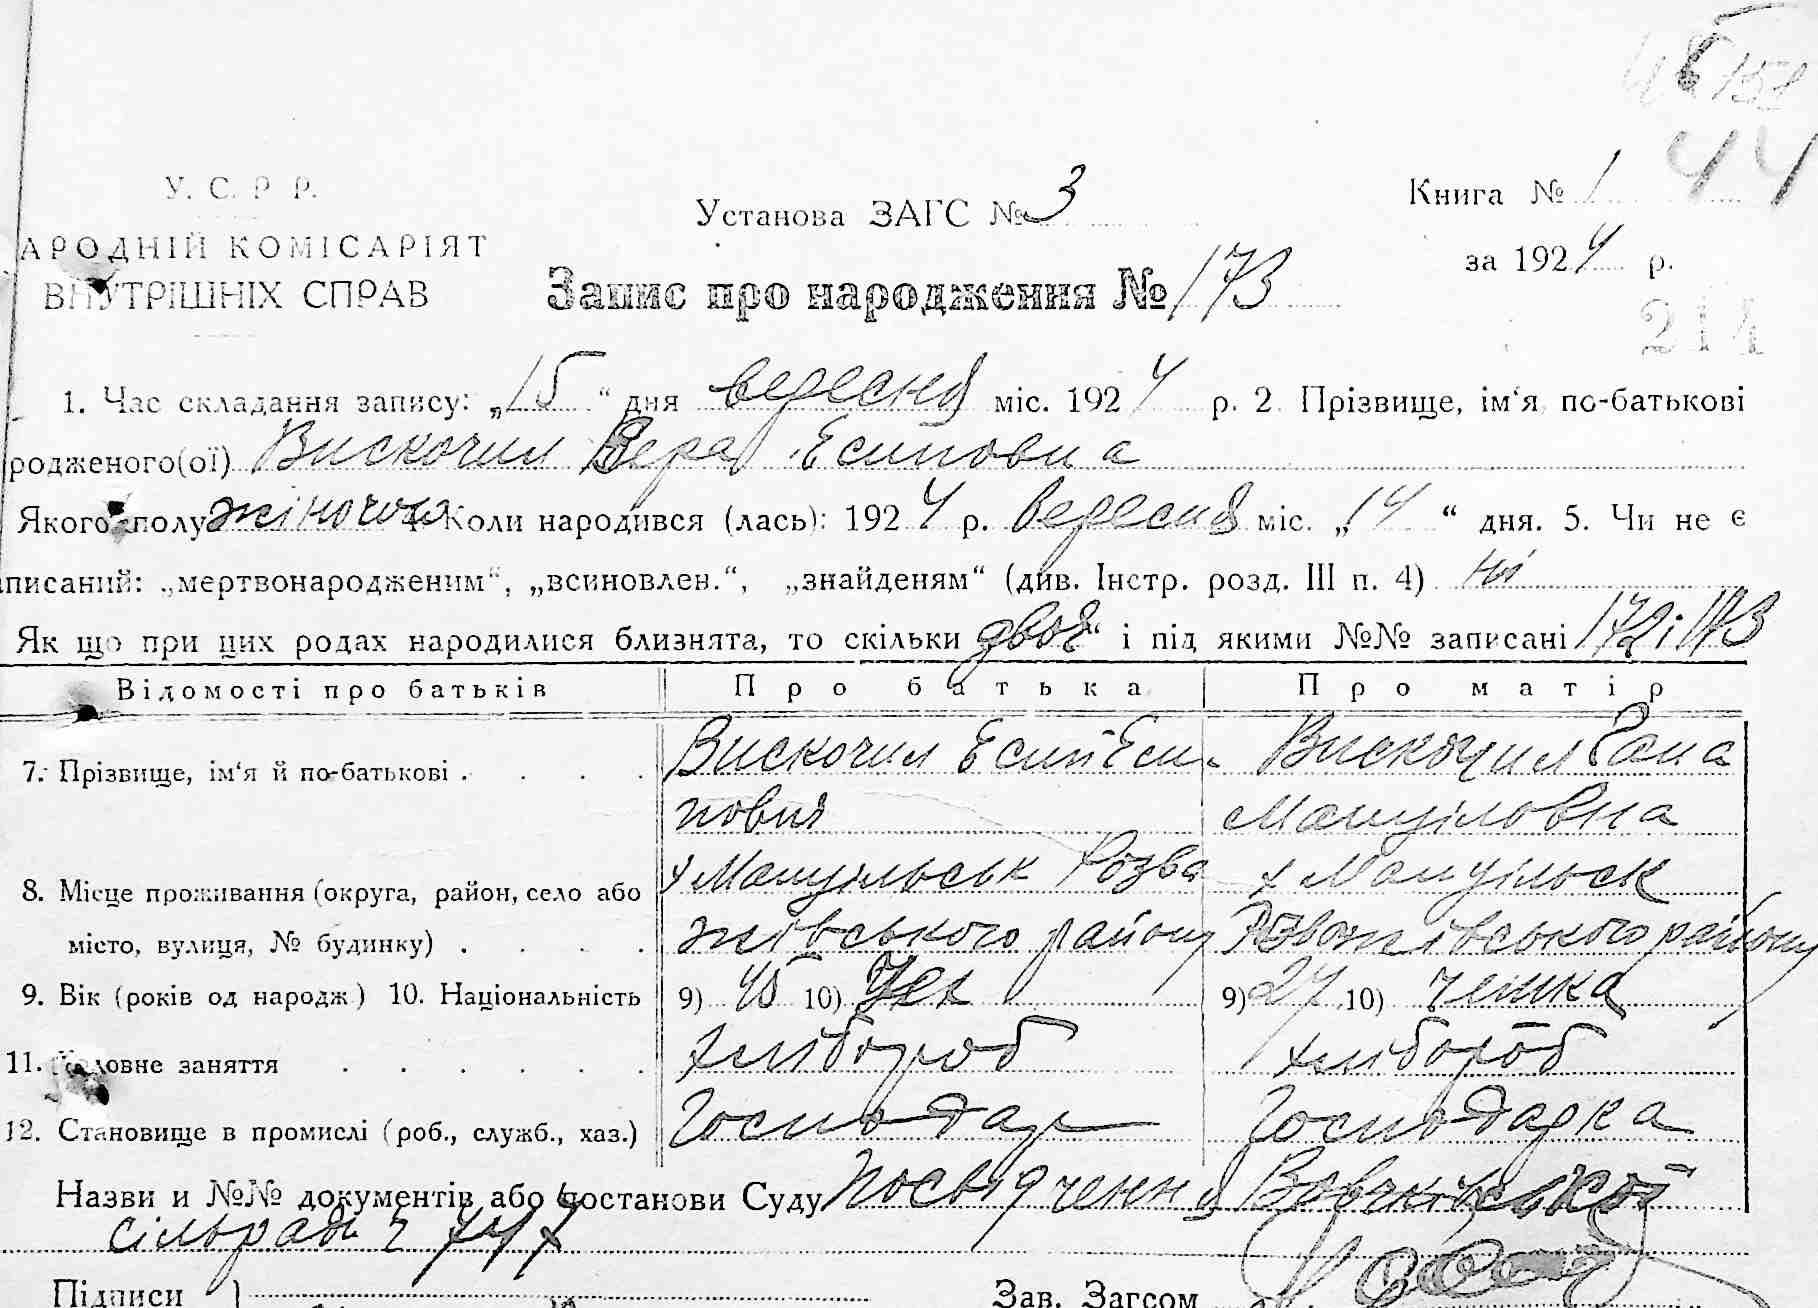 44
У. С. Р. Р.
АРОДНІЙ КОМІСАРІЯТ
ВНУТРІШНІХ СПРАВ
Установа ЗАГС № 3
Книга № 1
за 1924 р.
Запис про народження № 173
214
1. Час складання запису: „15“ дня вересня міс. 1924 р. 2 Прізвище, ім‘я, по-батькові
родженого(ої) Вискочил Вера Есиповна
Якого полу жіночого 4. Коли народився (лась): 1924 р. вересня міс. „14“ дня. 5. Чи не є
писаний: „мертвонародженим“, „всиновлен.“, „знайденям“ (див. Інстр. розд. III п. 4) ні
Як що при цих родах народилися близнята, то скільки двоє“ і під якими №№ записані 172 і 173
Відомості про батьків Про батька Про матір
7. Прізвище, ім‘я й по-батькові . . . . Вискочил Есип Еси- Вискочил
пович Мануіловна
х Мануільськ Розва х Мануільск
8. Місце проживання (округа, район, село або
місто, вулиця, № будинку) . . . . жівського району Розважівського району
9. Вік (років од народж) 10. Національність 9) 45 10) Чех 9) 27 10) чешка
11. Головне заняття . . . . . . хлібороб хлібороб
12. Становище в промислі (роб., служб., хаз.) Господар Господарка
Назви и №№ документів або постанови Суду Посвідчення Вовчківської
сільради ч 747
Підписи
Зав. Загсом